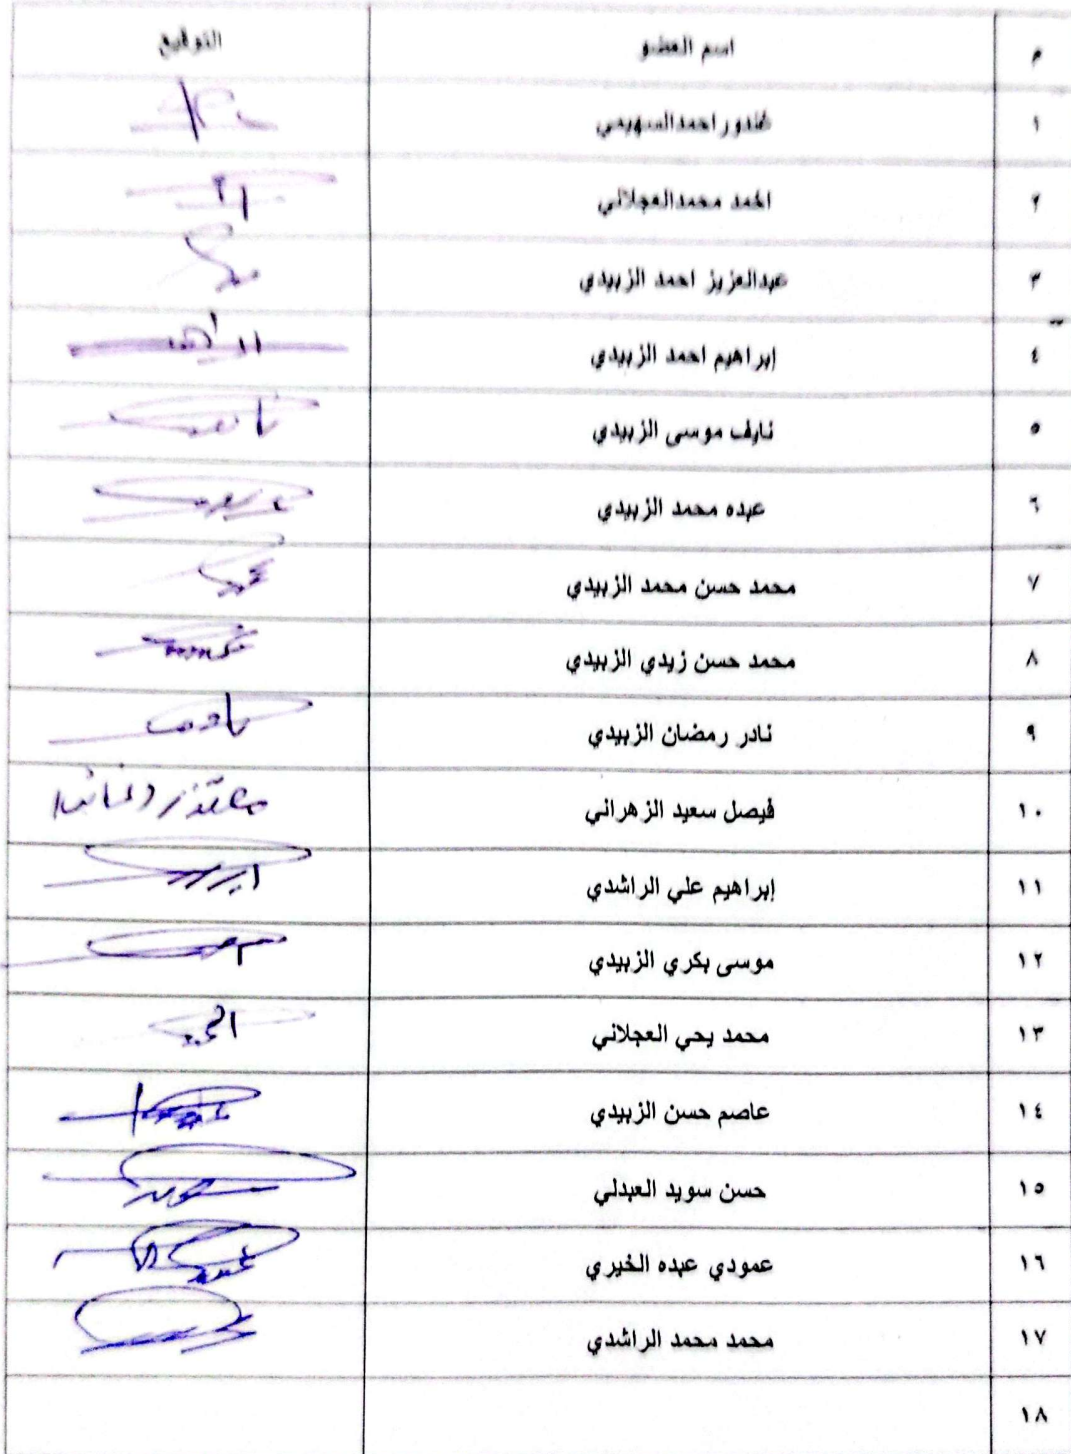 م اسم العضو التوقيع
١ غندور احمدالسهيمي
٢ احمد محمدالعجلاني
٣ عبدالعزيز احمد الزبيدي
٤ إبراهيم احمد الزبيدي
٥ نايف موسى الزبيدي
٦ عبده محمد الزبيدي
٧ محمد حسن محمد الزبيدي
٨ محمد حسن زيدي الزبيدي
٩ نادر رمضان الزبيدي
١٠ فيصل سعيد الزهراني
١١ إبراهيم علي الراشدي
١٢ موسى بكري الزبيدي
١٣ محمد يحي العجلاني
١٤ عاصم حسن الزبيدي
١٥ حسن سويد العبدلي
١٦ عمودي عبده الخيري
١٧ محمد محمد الراشدي
١٨